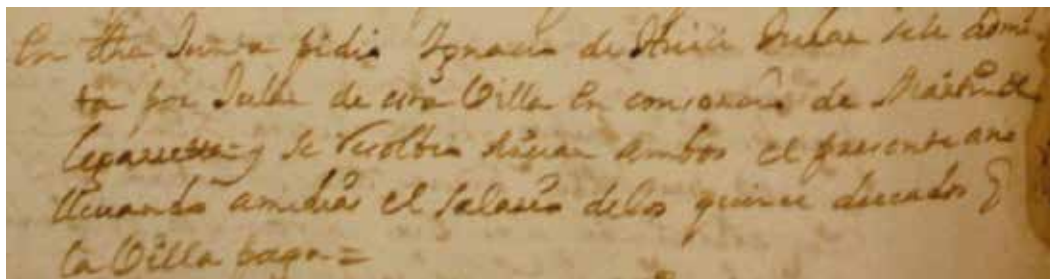 En dha Junta pidio Ignacio de se le admi
ta por Jular de esta Villa en consorcio de Martin de
Legarretta y se resolbio sirvan ambos el presente año
lleuando amedias el Salario delos quince ducados q
la Villa paga =